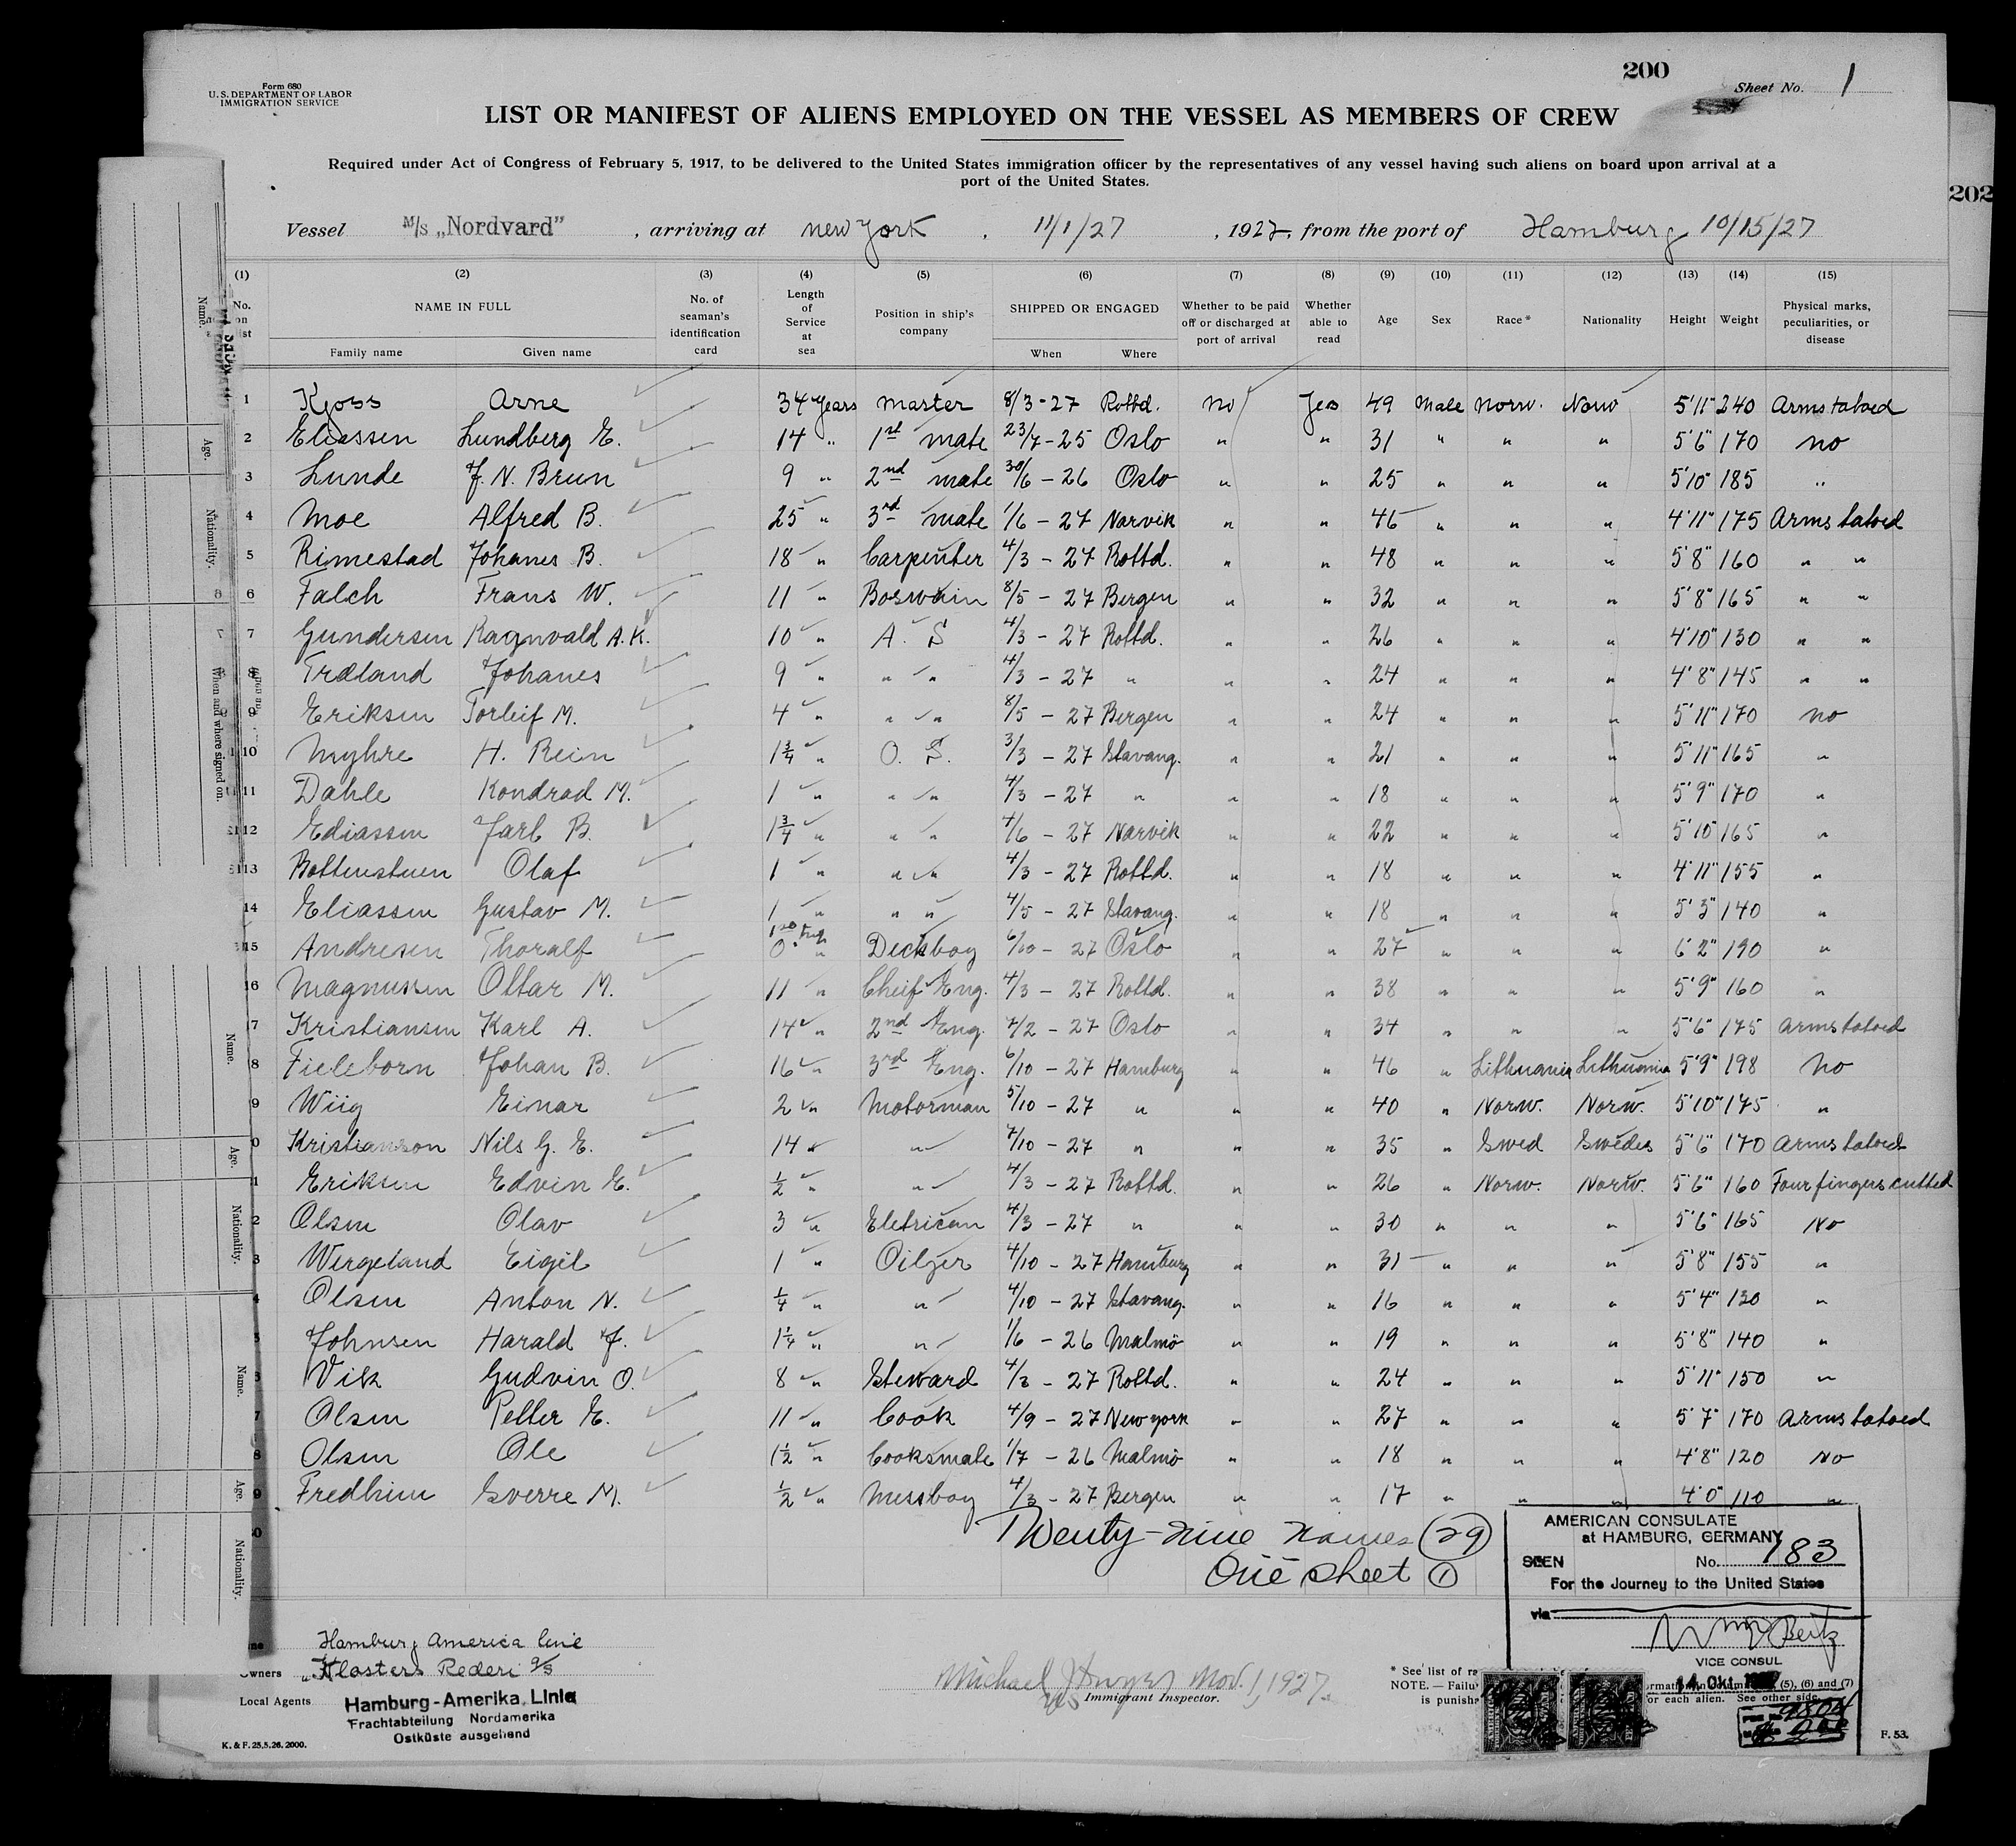 200
Form 680
U. S. DEPARTMENT OF LABOR
IMMIGRATION SERVICE
Sheet No. 1
LIST OR MANIFEST OF ALIENS EMPLOYED ON THE VESSEL AS MEMBERS OF CREW
Required under Act of Congress of February 5, 1917, to be delivered to the United States immigration officer by the representatives of any vessel having such aliens on board upon arrival at a
port of the United States.
202
Vessel M/S „Nordvard" , arriving at New York , 11/1/27 , 1927, from the port of Hamburg 10/15/27
(1) (2) (3) (4) (5) (6) (7) (8) (9) (10) (11) (12) (13) (14) (15)
No. on list NAME IN FULL Family name Given name No. of seaman's identification card Length of Service at sea Position in ship's company SHIPPED OR ENGAGED When Where Whether to be paid off or discharged at port of arrival Whether able to read Age Sex Race * Nationality Height Weight Physical marks, peculiarities, or disease
1 Kjoss Arne 34 years Master 8/3-27 Rottd. No Yes 49 Male Norw. Norw 5'11" 240 Arms tatoed
2 Eliassen Lundberg E. 14 " 1st mate 23/7-25 Oslo " " 31 " " " 5'6" 170 no
3 Lunde J. N. Brun 9 " 2nd mate 30/6-26 Oslo " " 25 " " " 5'10" 185 "
4 Moe Alfred B. 25 " 3rd mate 1/6-27 Narvik " " 46 " " " 4'11" 175 Arms tatoed
5 Rimestad Johanes B. 18 " Carpenter 4/3-27 Rottd. " " 48 " " " 5'8" 160 " "
6 Falch Frans W. 11 " Boswain 8/5-27 Bergen " " 32 " " " 5'8" 165 " "
7 Gundersen Ragnvald A. K. 10 " A. S 4/3-27 Rottd. " " 26 " " " 4'10" 130 " "
8 Træland Johanes 9 " " " 4/3-27 " " " 24 " " " 4'8" 145 " "
9 Eriksen Torleif M. 4 " " " 8/5-27 Bergen " " 24 " " " 5'11" 170 no
10 Myhre H. Rein 1 3/4 " O. S. 3/3-27 Stavang. " " 21 " " " 5'11" 165 "
11 Dahle Kondrad M. 1 " " " 4/3-27 " " " 18 " " " 5'9" 170 "
12 Ediassen Jarl B. 1 3/4 " " " 4/6-27 Narvik " " 22 " " " 5'10" 165 "
13 Bottenstuen Olaf 1 " " " 4/3-27 Rottd. " " 18 " " " 4'11" 155 "
14 Eliassen Gustav M. 1 " " " 4/5-27 Stavang. " " 18 " " " 5'3" 140 "
15 Andresen Thoralf 0 " Decksboy 6/10-27 Oslo " " 27 " " " 6'2" 190 "
16 Magnussen Ottar M. 11 " Cheif Eng. 4/3-27 Rottd. " " 38 " " " 5'9" 160 "
7 Kristiansen Karl A. 14 " 2nd Eng. 7/2-27 Oslo " " 34 " " " 5'6" 175 Arms tatoed
8 Fieleborn Johan B. 16 " 3rd Eng. 6/10-27 Hamburg " " 46 " Lithuania Lithuania 5'9" 198 No
9 Wiig Einar 2 " Motorman 5/10-27 " " " 40 " Norw. Norw. 5'10" 175 "
0 Kristianson Nils G. E. 14 " " 7/10-27 " " " 35 " Swed Swedes 5'6" 170 Arms tatoed
1 Eriksen Edvin E. 1/2 " " 4/3-27 Rottd. " " 26 " Norw. Norw. 5'6" 160 Four fingers cutted
2 Olsen Olav 3 " Eletrican 4/3-27 " " " 30 " " " 5'6" 165 No
3 Wergeland Eigil 1 " Oilzer 4/10-27 Hamburg " " 31 " " " 5'8" 155 "
4 Olsen Anton N. 1/4 " " 4/10-27 Stavang. " " 16 " " " 5'4" 130 "
5 Johnsen Harald J. 1 1/4 " " 1/6-26 Malmö " " 19 " " " 5'8" 140 "
Vik Gudvin O. 8 " Steward 4/3-27 Rottd. " " 24 " " " 5'11" 150 "
7 Olsen Petter E. 11 " Cook 4/9-27 New york " " 27 " " " 5'7" 170 Arms tatoed
8 Olsen Ole 1 1/2 " Cooksmate 1/7-26 Malmö " " 18 " " " 4'8" 120 No
9 Fredheim Sverre M. 1/2 " Messboy 4/3-27 Bergen " " 17 " " " 4'0" 110 "
0 Twenty-nine names (29)
One sheet (1)
AMERICAN CONSULATE
at HAMBURG, GERMANY
SEEN No. 183
For the Journey to the United States
via
VICE CONSUL
14. Okt. 1927
Hamburg America line
Owners „Klosters Rederi A/S
Local Agents Hamburg-Amerika Linie
Frachtabteilung Nordamerika
Ostküste ausgehend
Michael J Dwyer Nov. 1, 1927.
Immigrant Inspector.
* See list of ra
NOTE.—Failu (5), (6) and (7)
is punish for each alien. See other side.
K. & F. 25.5.26. 2000.
F. 53.
Name.
Age.
Nationality.
When and where signed on.
Name.
Age.
Nationality.
Name.
Age.
Nationality.